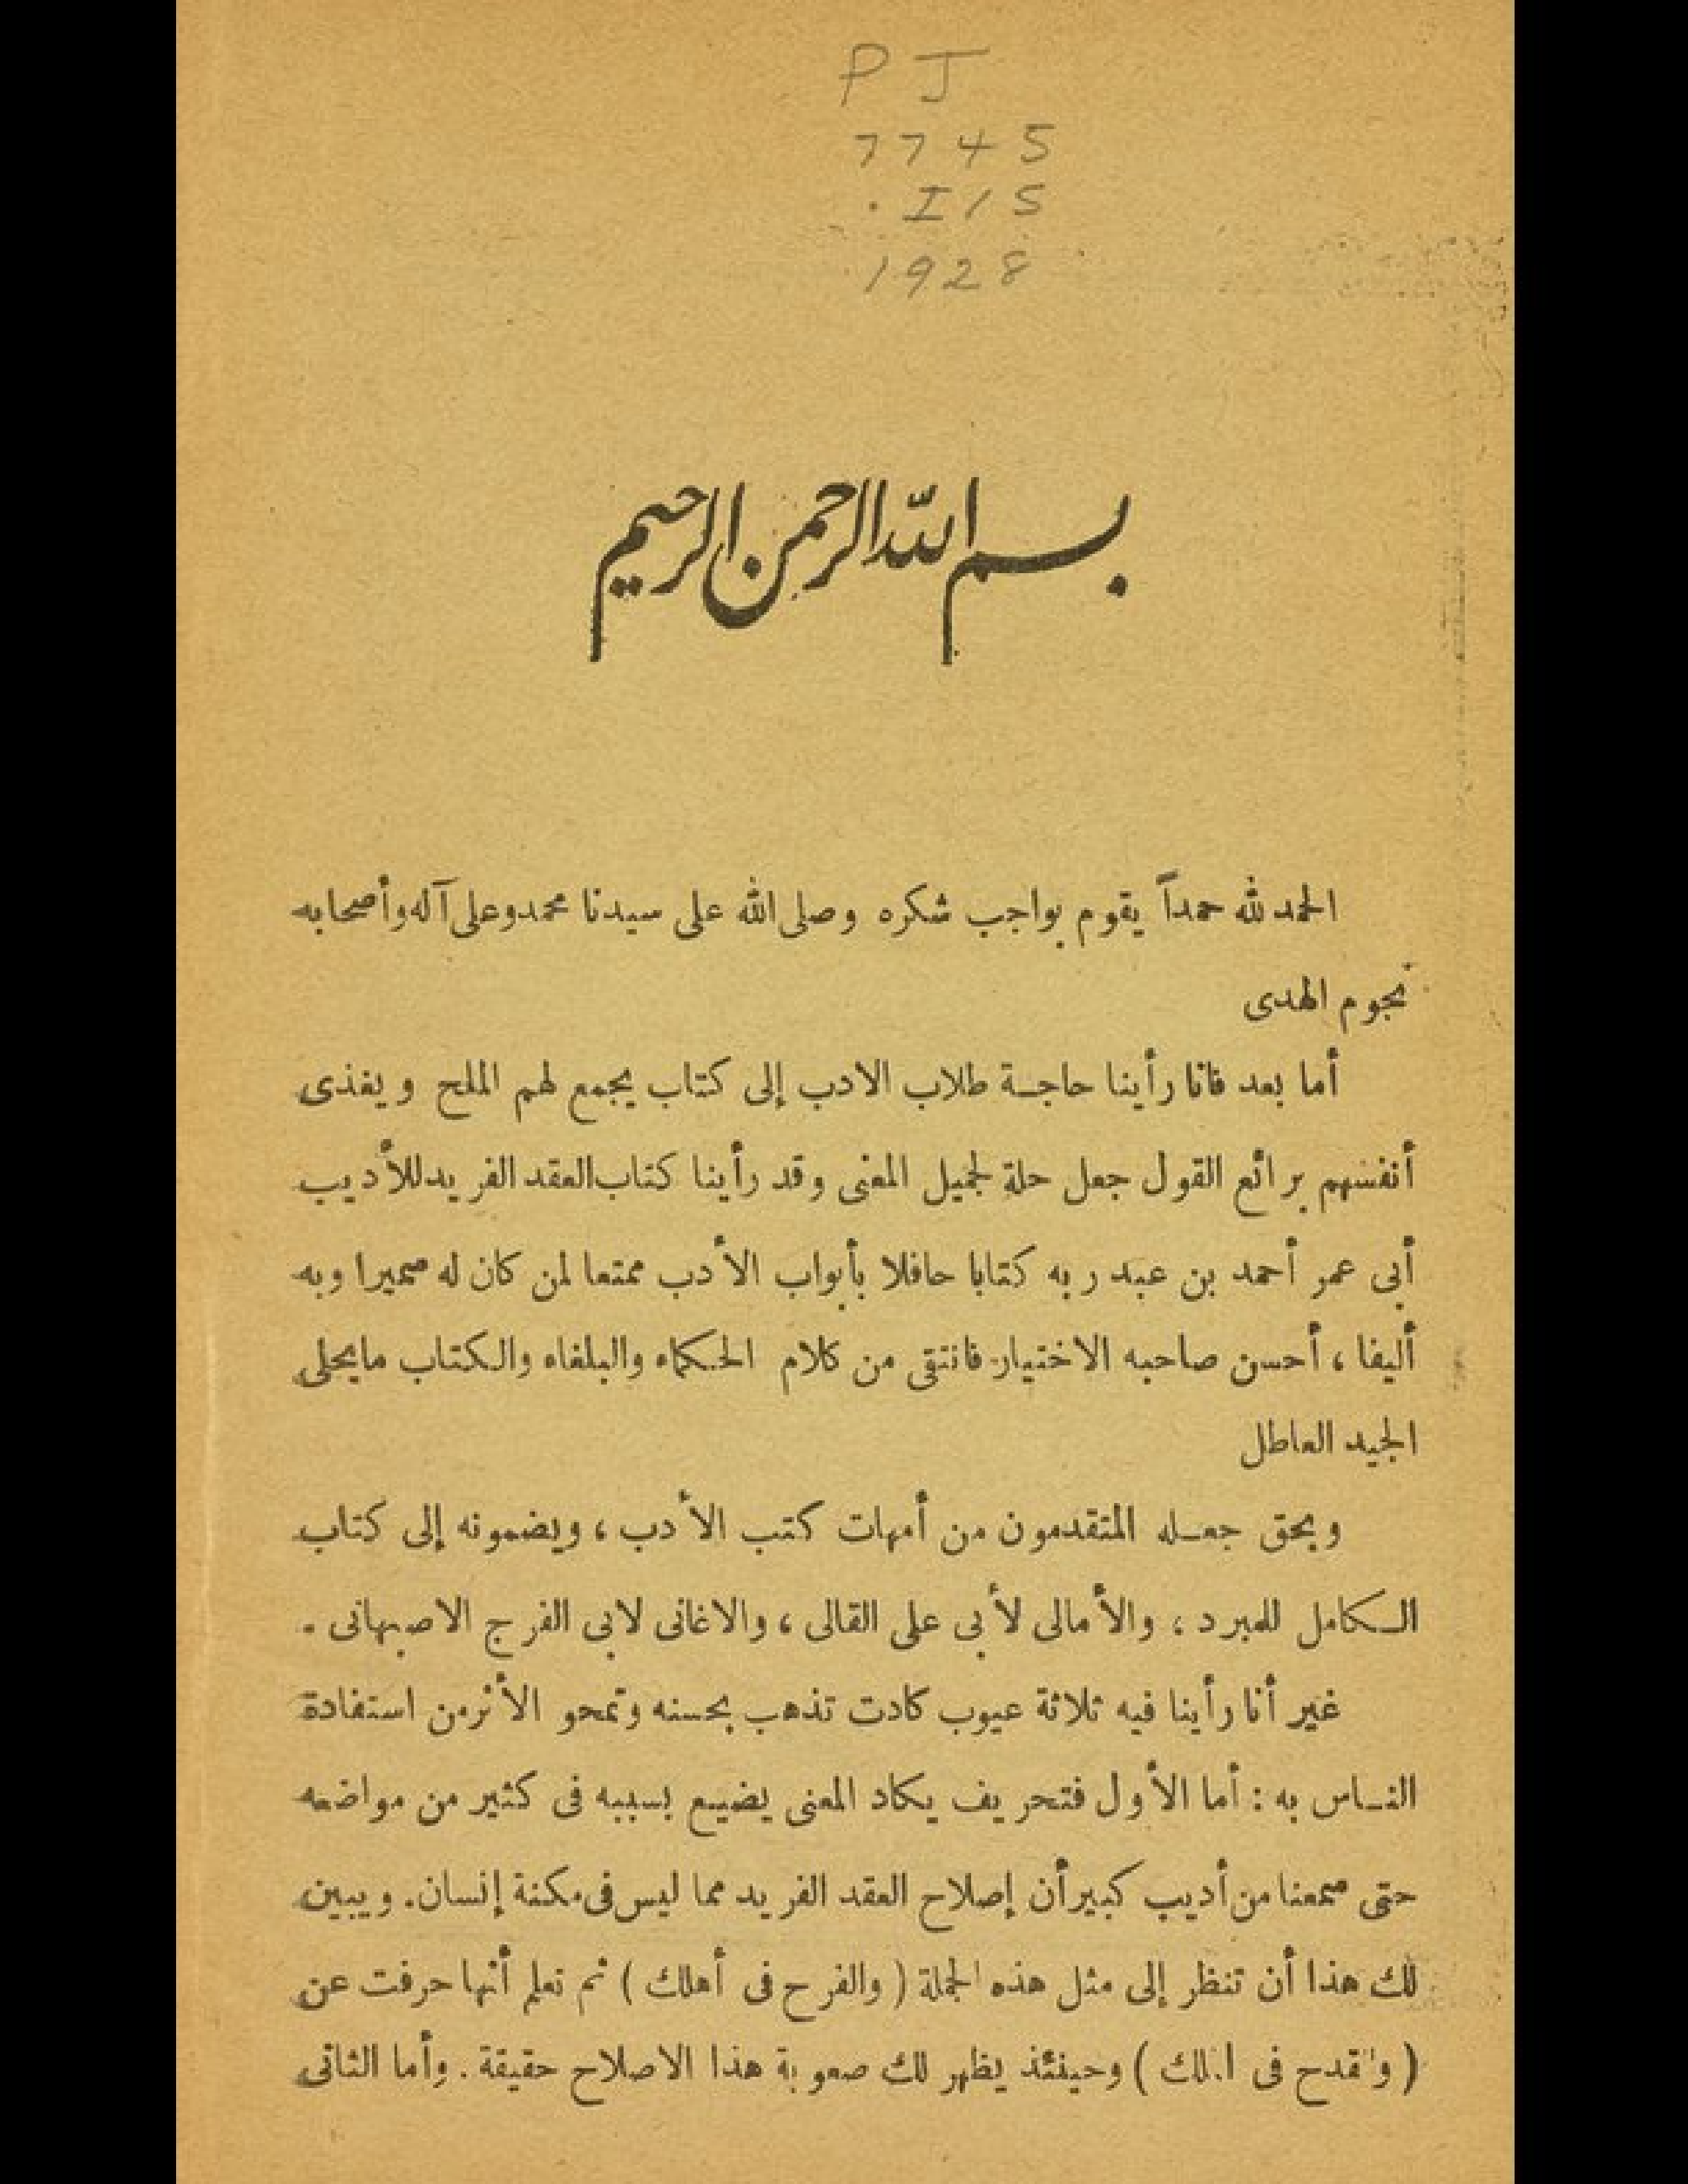 PJ
7745
.I15
1928
بسم الله الرحمن الرحيم
الحمد لله حمداً يقوم بواجب شكره وصلى الله على سيدنا محمد وعلى آله وأصحابه
نجوم الهدى
أما بعد فانا رأينا حاجة طلاب الادب إلى كتاب يجمع لهم الملح ويغذى
أنفسهم برائع القول جعل حلة لجميل المعنى وقد رأينا كتاب العقد الفريد للأديب
أبى عمر أحمد بن عبد ربه كتابا حافلا بأبواب الأدب ممتعا لمن كان له سميرا وبه
أليفا ، أحسن صاحبه الاختيار فانتقى من كلام الحكماء والبلغاء والكتاب مايحلى
الجيد العاطل
وبحق جعله المتقدمون من أمهات كتب الأدب ، ويضمونه إلى كتاب
الكامل للمبرد ، والأمالى لأبى على القالى ، والاغانى لابى الفرج الاصبهانى .
غير أنا رأينا فيه ثلاثة عيوب كادت تذهب بحسنه وتمحو الأثر من استفادة
الناس به : أما الأول فتحريف يكاد المعنى يضيع بسببه فى كثير من مواضعه
حتى سمعنا من أديب كبير أن إصلاح العقد الفريد مما ليس فى مكنة إنسان . ويبين
لك هذا أن تنظر إلى مثل هذه الجملة ( والفرح فى أهلك ) ثم تعلم أنها حرفت عن
( والقدح فى الملك ) وحينئذ يظهر لك صعوبة هذا الاصلاح حقيقة . وأما الثانى